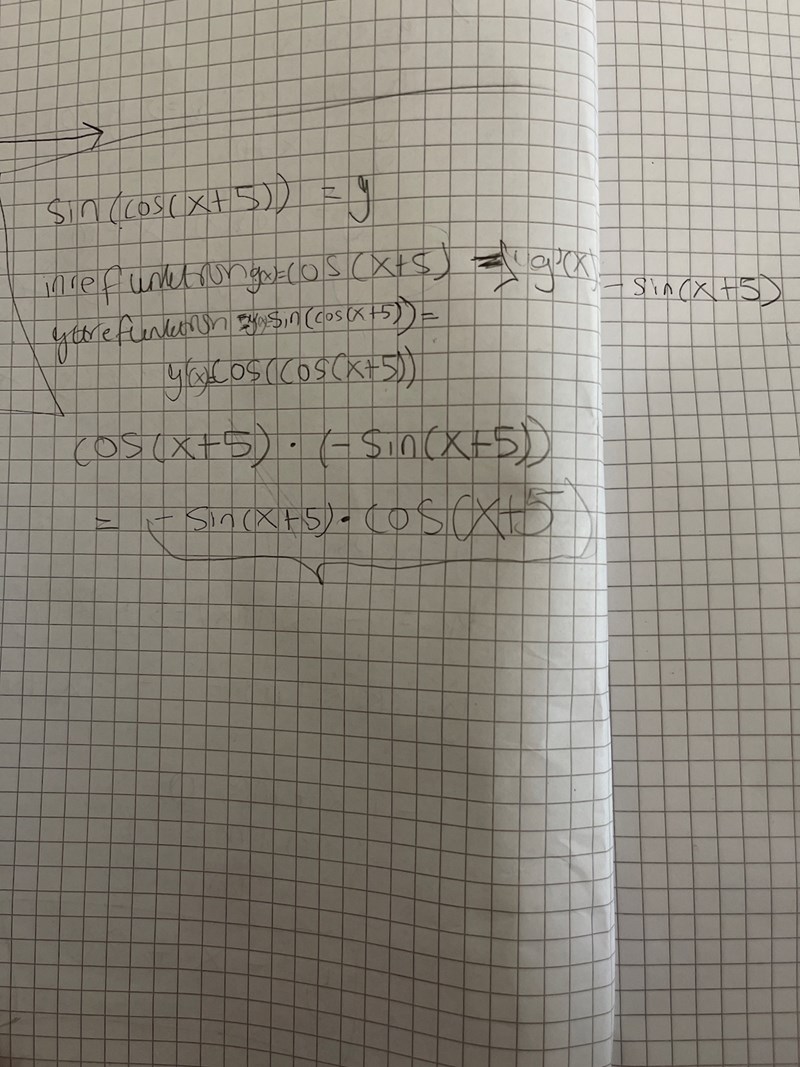 sin(cos(x+5)) = y
inrefunktion g(x)=cos(x+5) = g'(x) -sin(x+5)
yttrefunktion =y(x)=sin(cos(x+5))=
y(x)=cos(cos(x+5))
cos(x+5)·(-sin(x+5))
= -sin(x+5)·cos(x+5)